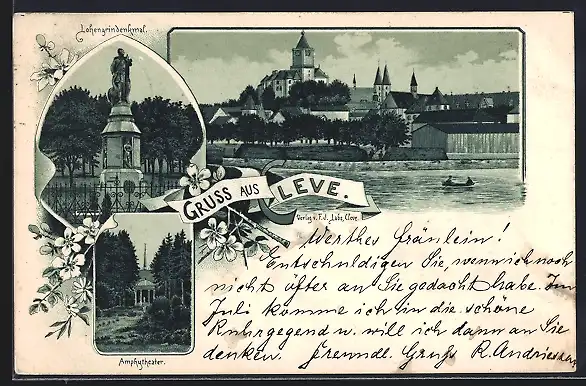 Lohengrindenkmal.
GRUSS AUS CLEVE.
Verlag v. F. J. Lübs, Cleve.
Werthes Fräulein!
Entschuldigen Sie, wenn ich noch
nicht öfter an Sie gedacht habe. Im
Juli komme ich in die schöne
Ruhrgegend u. will ich dann an Sie
denken. Freundl. Gruß R. Andries
Amphytheater.